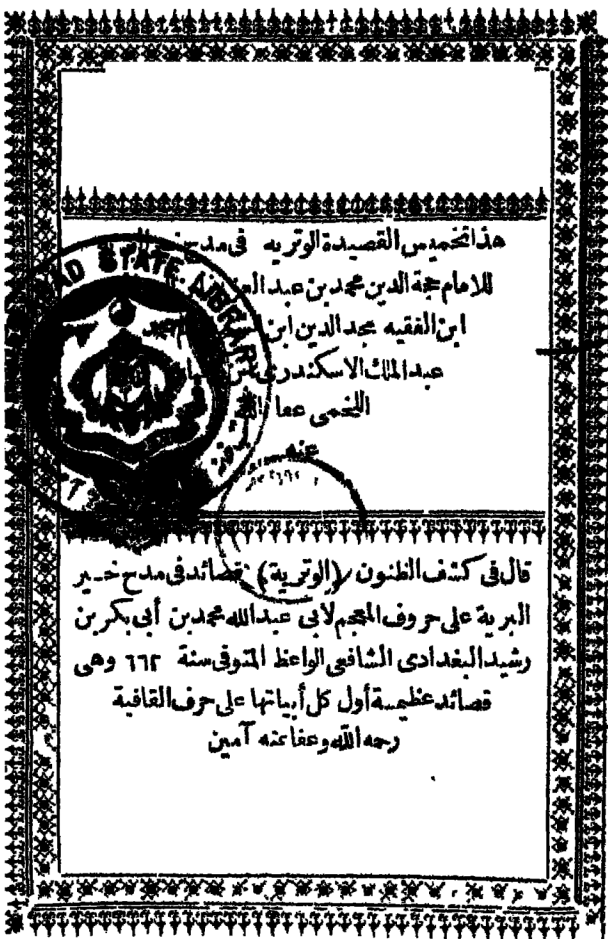 هذا تخميس القصيدة الوترية فى مدح
للامام حجة الدين محمد بن عبد
ابن الفقيه مجد الدين ابن
عبد الملك الاسكندرى
اللخمى عفا الله
عنه
AD STATE LIBRARY
قال فى كشف الظنون (الوترية) قصائد فى مدح خير
البرية على حروف المعجم لابى عبد الله محمد بن أبى بكر بن
رشيد البغدادى الشافعى الواعظ المتوفى سنة ٦٦٢ وهى
قصائد عظيمة أول كل أبياتها على حرف القافية
رحمه الله وعفا عنه آمين